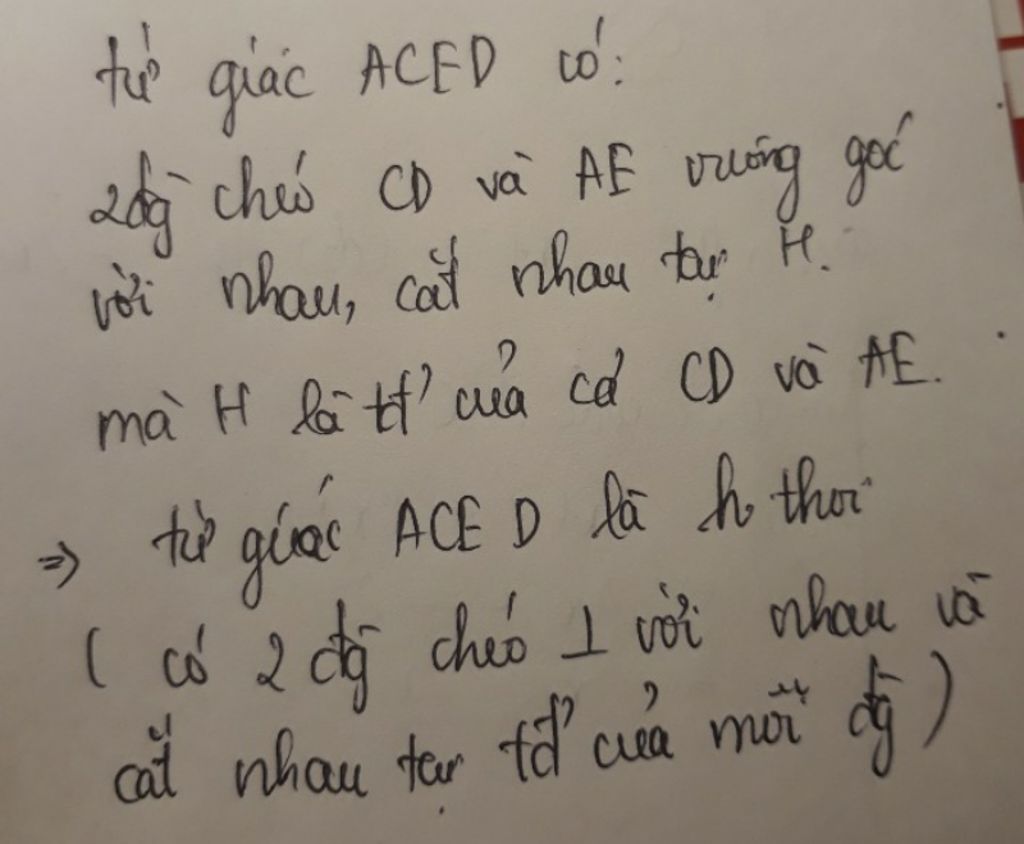 tứ giác ACED có:
2 đg chéo CD và AE vuông góc
với nhau, cắt nhau tại H.
mà H là tđ của cả CD và AE.
=> tứ giác ACED là h thoi
( có 2 đg chéo ⊥ với nhau và
cắt nhau tại tđ của mỗi đg )